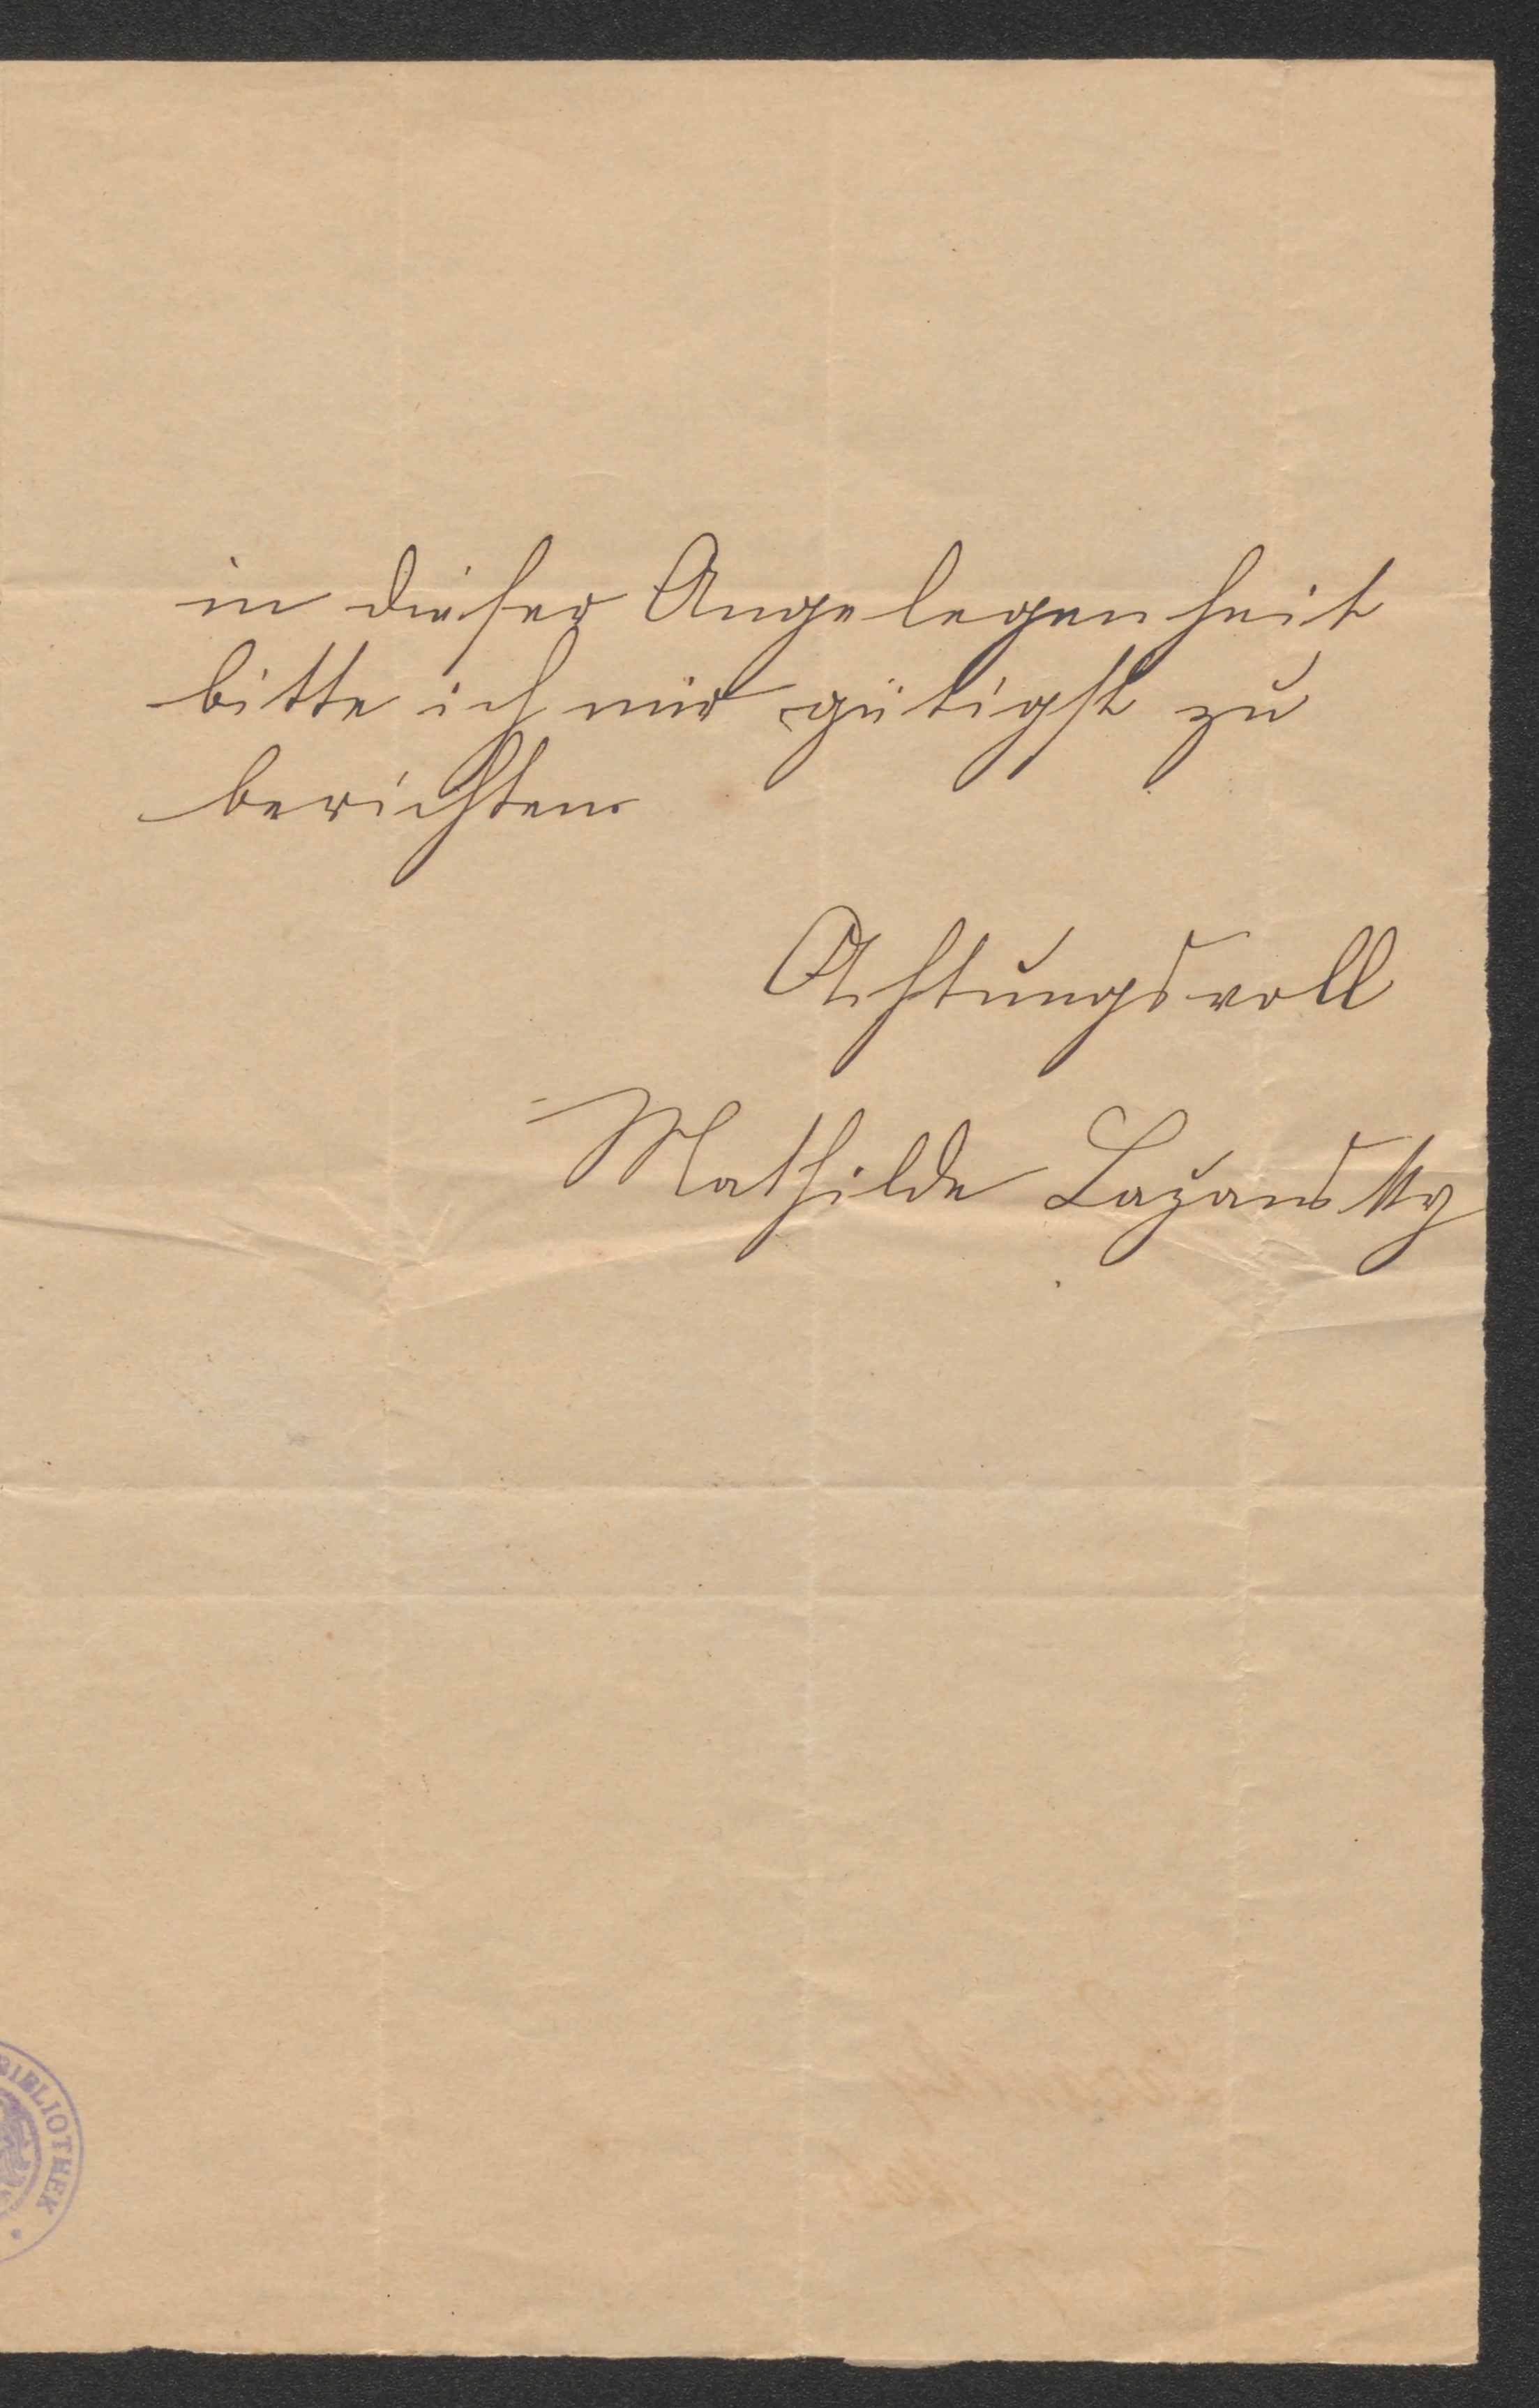 in dieser Angelegenheit
bitte ich mir gütigst zu
berichten.
Achtungsvoll
Mathilde Lažansky
BIBLIOTHEK